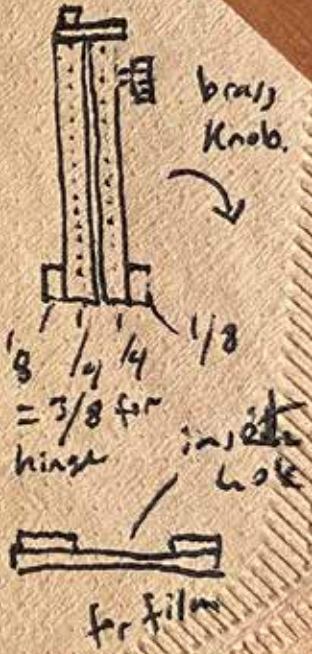 brass
Knob.
1/8 1/4 1/4 1/8
= 3/8 for
hinge
hole
for film